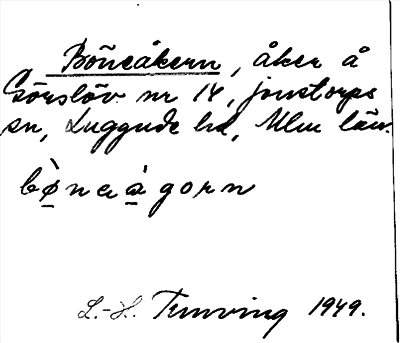 Böneåkern, åker å
Görslöv nr 14, Jonstorps
sn, Luggude hd, Mlm län.
bø̀neágorn
L.-H. Tunving 1949.